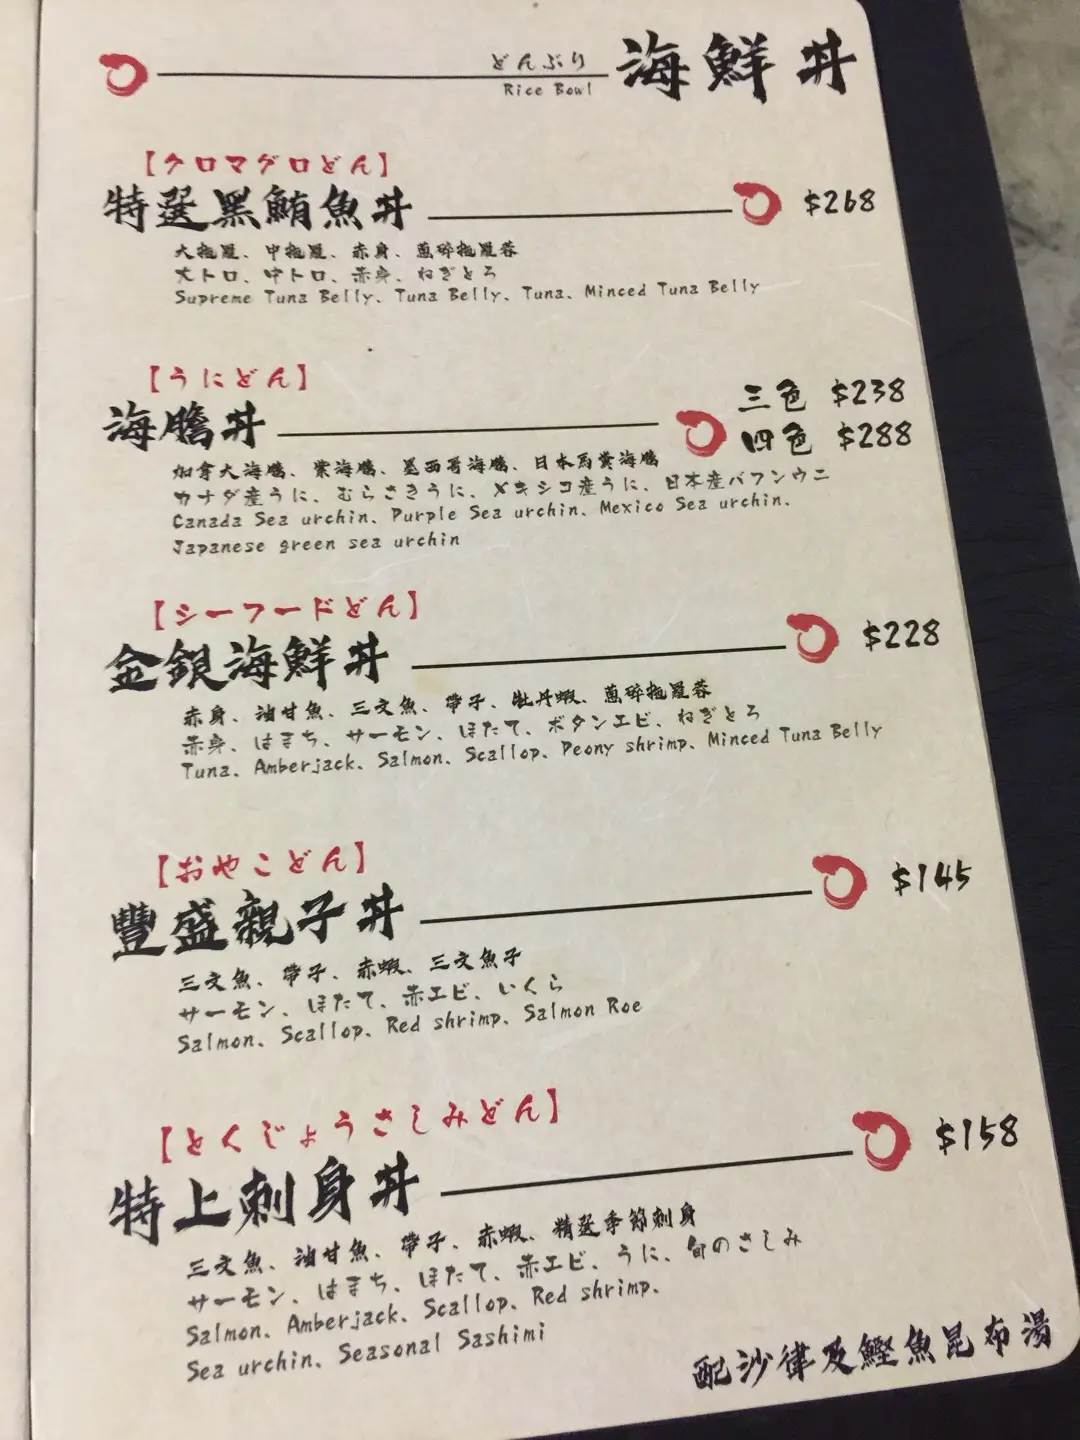 どんぶり
Rice Bowl
海鮮丼
【クロマグロどん】
特選黑鮪魚丼 $268
大拖羅、中拖羅、赤身、蔥碎拖羅蓉
大トロ、中トロ、赤身、ねぎとろ
Supreme Tuna Belly、Tuna Belly、Tuna、Minced Tuna Belly
【うにどん】
海膽丼
三色 $238
四色 $288
加拿大海膽、紫海膽、墨西哥海膽、日本馬糞海膽
カナダ産うに、むらさきうに、メキシコ産うに、日本産バフンウニ
Canada Sea urchin、Purple Sea urchin、Mexico Sea urchin、
Japanese green sea urchin
【シーフードどん】
金銀海鮮丼 $228
赤身、油甘魚、三文魚、帶子、牡丹蝦、蔥碎拖羅蓉
赤身、はまち、サーモン、ほたて、ボタンエビ、ねぎとろ
Tuna、Amberjack、Salmon、Scallop、Peony shrimp、Minced Tuna Belly
【おやこどん】
豐盛親子丼 $145
三文魚、帶子、赤蝦、三文魚子
サーモン、ほたて、赤エビ、いくら
Salmon、Scallop、Red shrimp、Salmon Roe
【とくじょうさしみどん】
特上刺身丼 $158
三文魚、油甘魚、帶子、赤蝦、精選季節刺身
サーモン、はまち、ほたて、赤エビ、うに、旬のさしみ
Salmon、Amberjack、Scallop、Red shrimp、
Sea urchin、Seasonal Sashimi
配沙律及鰹魚昆布湯